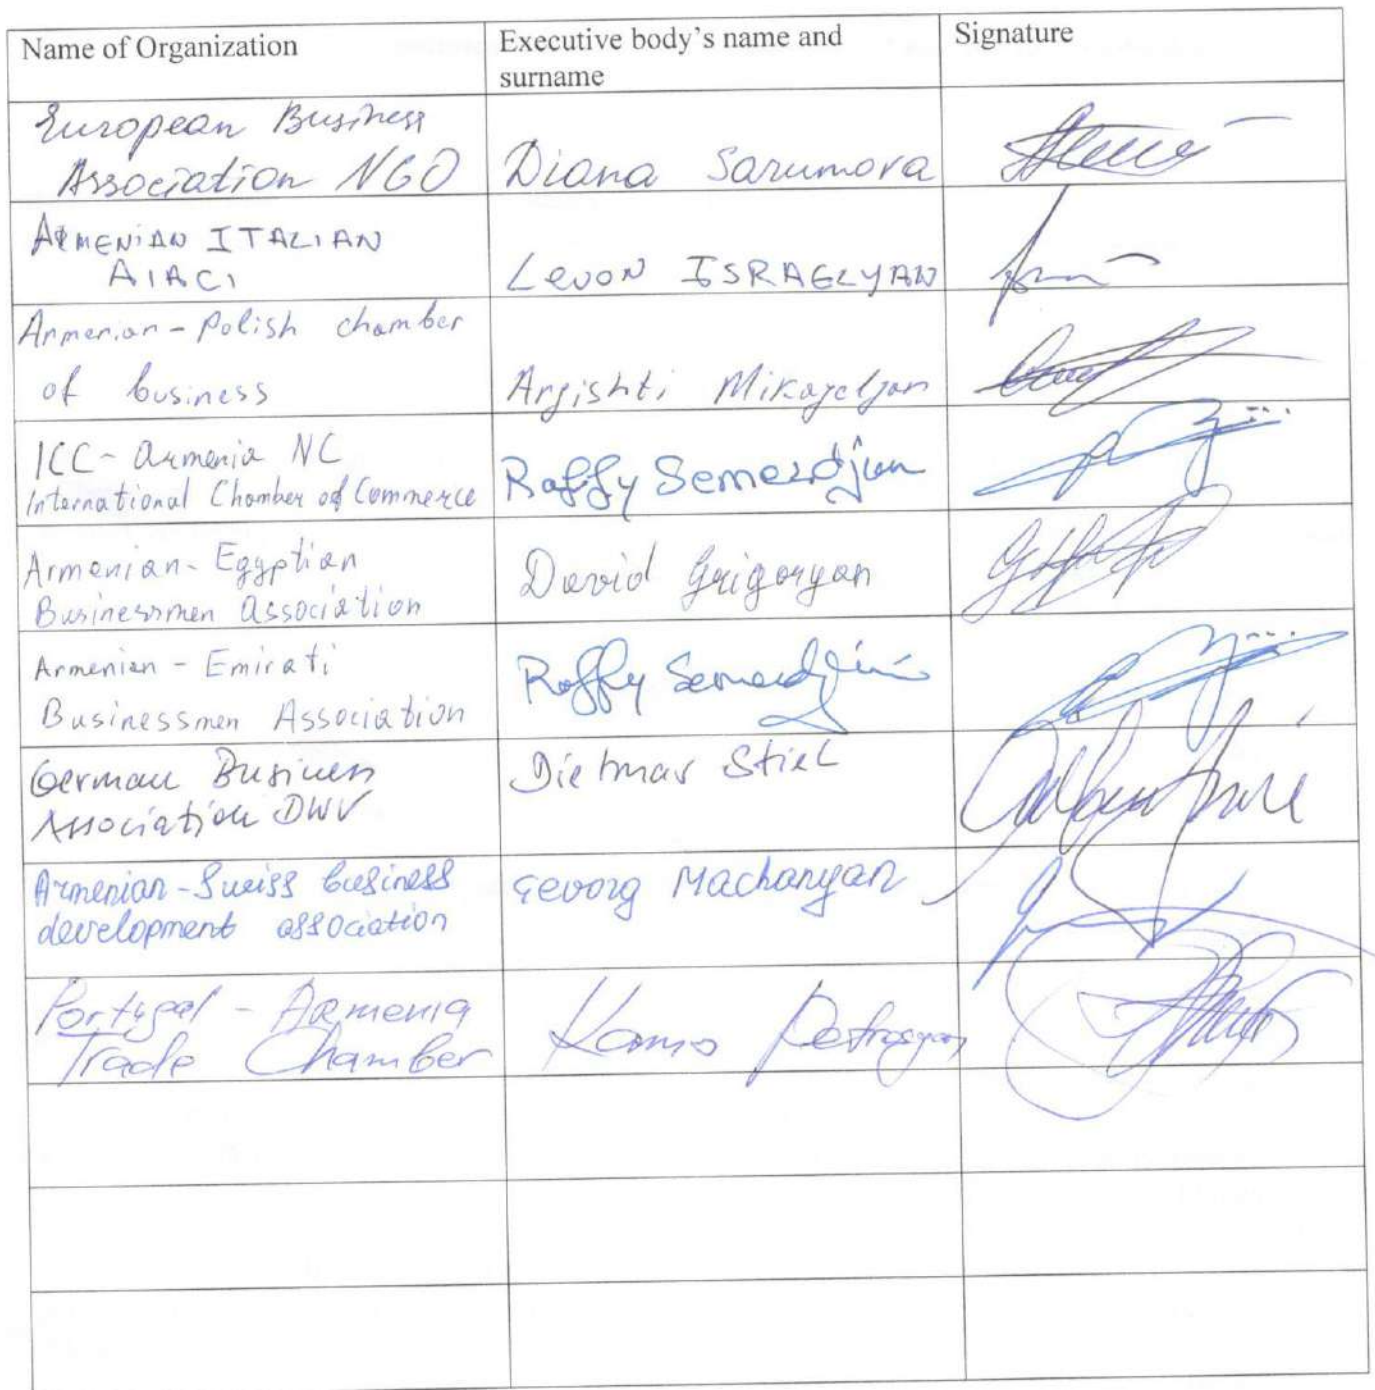 Name of Organization
Executive body's name and
surname
Signature
European Business
Association NGO
Diana Sarumova
ARMENIAN ITALIAN
AIACI
Levon ISRAELYAN
Armenian-Polish chamber
of business
Argishti Mikayelyan
ICC-Armenia NC
International Chamber of Commerce
Raffy Semerdjian
Armenian-Egyptian
Businessmen Association
David Grigoryan
Armenian-Emirati
Businessmen Association
Raffy Semerdjian
German Business
Association DWV
Dietmar Stiel
Armenian-Swiss business
development association
Gevorg Machanyan
Portugal-Armenia
Trade Chamber
Kamo Petrosyan